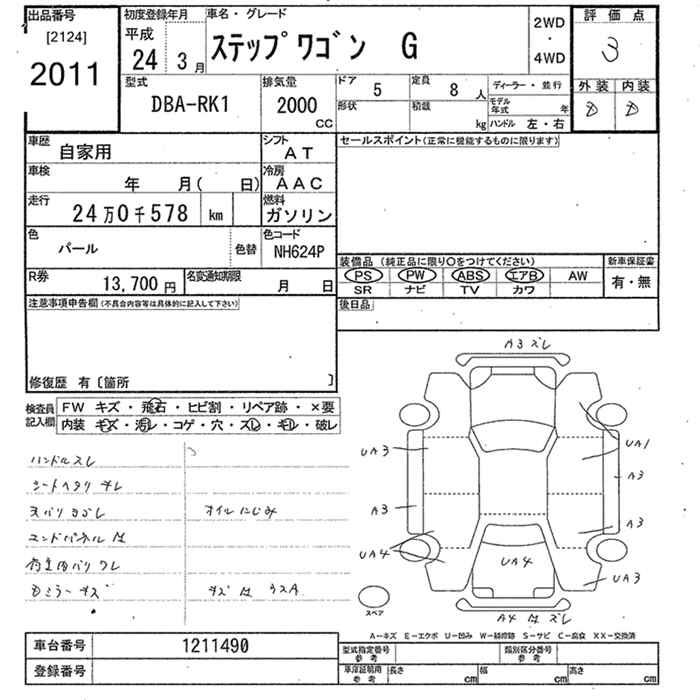 出品番号
[2124]
2011
初度登録年月
平成
24年 3月
車名・グレード
ステップワゴン G
2WD
・
4WD
評価点
3
外装 内装
D D
型式
DBA-RK1
排気量
2000
cc
ドア
5
定員
8 人
形状
積載
kg
ディーラー・並行
モデル年式 年
ハンドル 左・右
車歴
自家用
シフト
AT
車検
年 月( 日)
冷房
AAC
走行
24万0千578 km
燃料
ガソリン
色
パール
色替
色コード
NH624P
R券
13,700 円
名変通知期限
月 日
セールスポイント(正常に機能するものに限ります)
装備品 (純正品に限り○をつけてください)
PS PW ABS エアB AW
SR ナビ TV カワ
新車保証書
有・無
後日品
注意事項申告欄(不具合内容等は具体的に記入して下さい)
修復歴 有〔箇所 〕
検査員記入欄
FW キズ・飛石・ヒビ割・リペア跡・×要
内装 キズ・汚レ・コゲ・穴・スレ・キレ・破レ
ハンドルスレ
シートヘタリ キレ
天バリ ヨゴレ
オイルにじみ
A3 ズレ
UA3
UA1
A3
A3
A3
UA4
UA4
UA3
A4
ズレ
スペア
A-キズ E-エクボ U-凹み W-補修跡 S-サビ C-腐食 XX-交換済
車台番号
1211490
登録番号
型式指定番号
参考
類別区分番号
参考
車庫証明用
参考
長さ cm
幅 cm
高さ cm